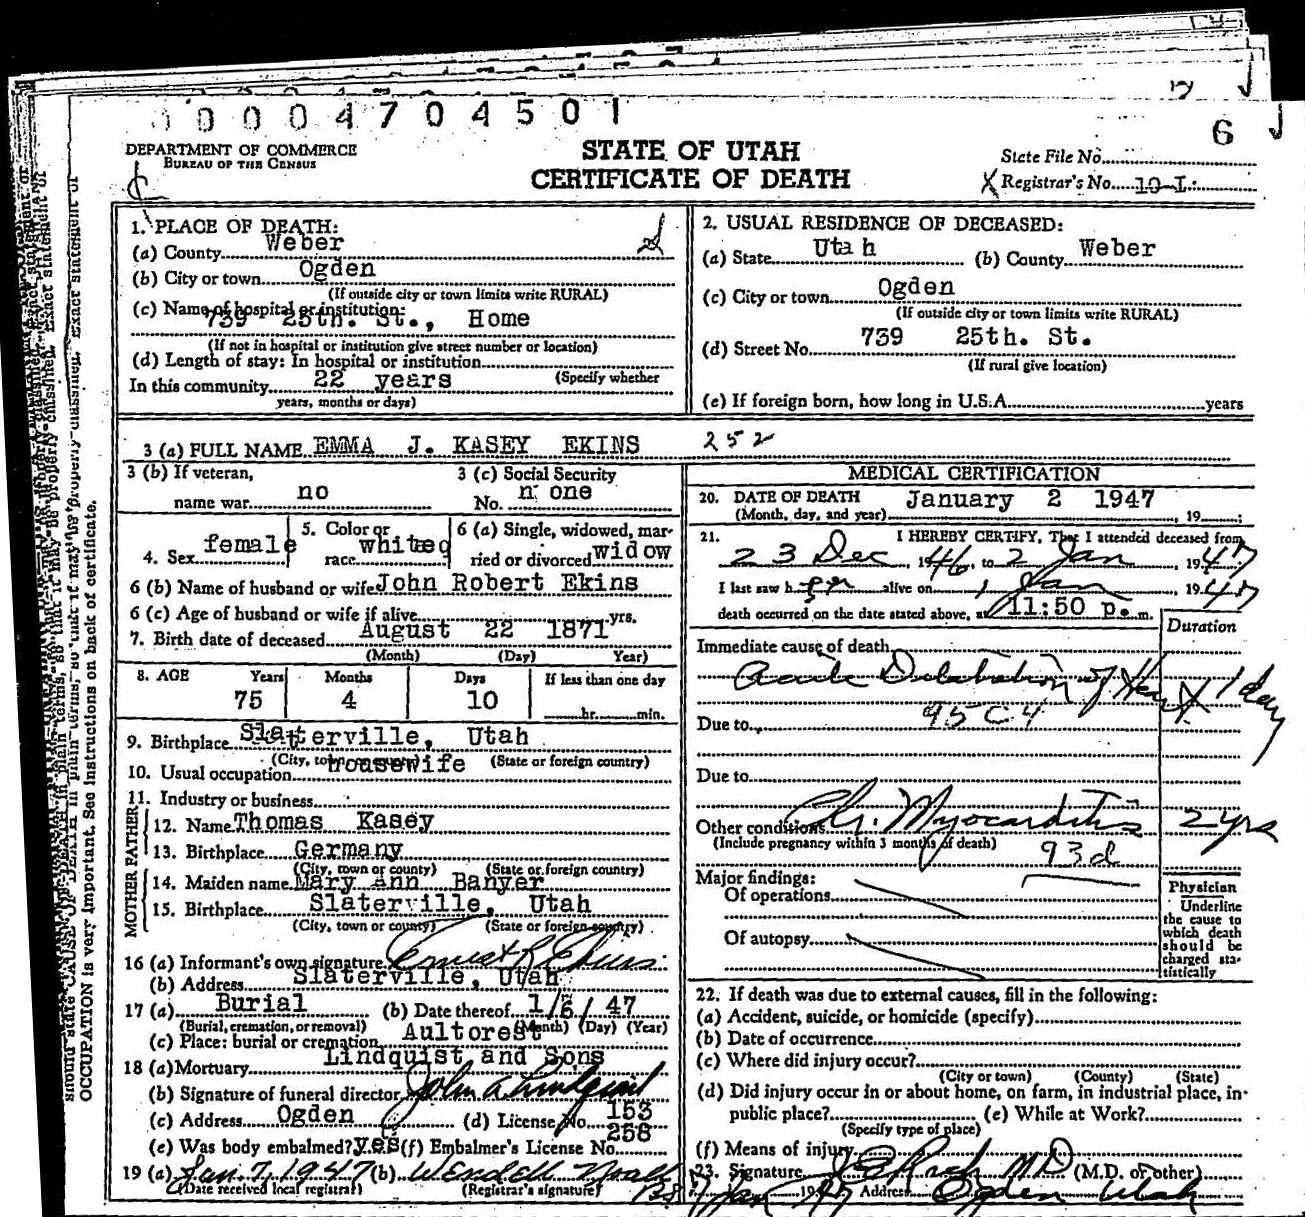 0 0 0 0 4 7 0 4 5 0 1
6
DEPARTMENT OF COMMERCE
BUREAU OF THE CENSUS
STATE OF UTAH
CERTIFICATE OF DEATH
State File No.
X Registrar's No. 10-I
1. PLACE OF DEATH:
(a) County Weber
(b) City or town Ogden
(If outside city or town limits write RURAL)
(c) Name of hospital or institution:
739 25th. St., Home
(If not in hospital or institution give street number or location)
(d) Length of stay: In hospital or institution
In this community 22 years (Specify whether
years, months or days)
2. USUAL RESIDENCE OF DECEASED:
(a) State Utah (b) County Weber
(c) City or town Ogden
(If outside city or town limits write RURAL)
(d) Street No. 739 25th. St.
(If rural give location)
(e) If foreign born, how long in U.S.A. years
3 (a) FULL NAME EMMA J. KASEY EKINS 252
3 (b) If veteran,
name war no
3 (c) Social Security
No. none
4. Sex female
5. Color or
race white
6 (a) Single, widowed, mar-
ried or divorced widow
6 (b) Name of husband or wife John Robert Ekins
6 (c) Age of husband or wife if alive yrs.
7. Birth date of deceased August 22 1871
(Month) (Day) Year)
8. AGE Years Months Days If less than one day
75 4 10 hr. min.
9. Birthplace Slatterville, Utah
(City, town or county) (State or foreign country)
10. Usual occupation Housewife
11. Industry or business
FATHER
12. Name Thomas Kasey
13. Birthplace Germany
(City, town or county) (State or foreign country)
MOTHER
14. Maiden name Mary Ann Banyer
15. Birthplace Slaterville, Utah
(City, town or county) (State or foreign country)
16 (a) Informant's own signature Ernest R Ekins
(b) Address Slaterville, Utah
17 (a) Burial (b) Date thereof 1/6/47
(Burial, cremation, or removal) (Month) (Day) (Year)
(c) Place: burial or cremation Aultorest
18 (a) Mortuary Lindquist and Sons
(b) Signature of funeral director John A Lindquist
(c) Address Ogden (d) License No. 153
(e) Was body embalmed? yes (f) Embalmer's License No. 258
19 (a) Jan. 7, 1947 (b) Wendell
(Date received local registrar) (Registrar's signature)
MEDICAL CERTIFICATION
20. DATE OF DEATH January 2 1947
(Month, day, and year) , 19 ;
21. I HEREBY CERTIFY, That I attended deceased from
23 Dec, 1946, to 2 Jan, 1947
I last saw her alive on 1 Jan, 1947
death occurred on the date stated above, at 11:50 p. m.
Duration
Immediate cause of death
Acute Dilatation of Heart 1 day
95C4
Due to
Due to
Other conditions Chr. Myocarditis 2 yrs
(Include pregnancy within 3 months of death) 93d
Major findings:
Of operations
Of autopsy
Physician
Underline
the cause to
which death
should be
charged sta-
tistically
22. If death was due to external causes, fill in the following:
(a) Accident, suicide, or homicide (specify)
(b) Date of occurrence
(c) Where did injury occur?
(City or town) (County) (State)
(d) Did injury occur in or about home, on farm, in industrial place, in-
public place? (e) While at Work?
(Specify type of place)
(f) Means of injury
23. Signature MD (M.D. or other)
7 Jan 1947 Address Ogden Utah
OCCUPATION is very important. See instructions on back of certificate.